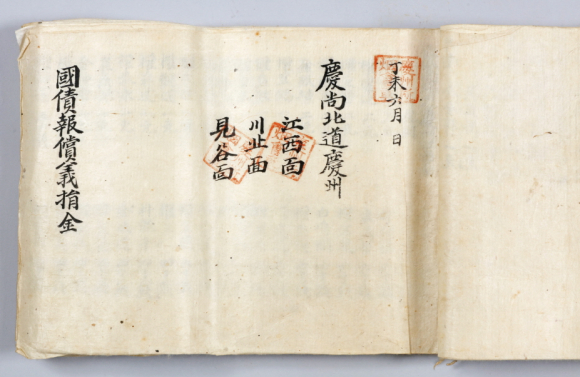 丁未六月 日
慶尚北道慶州
江西面
川北面
見谷面
國債報償義捐金